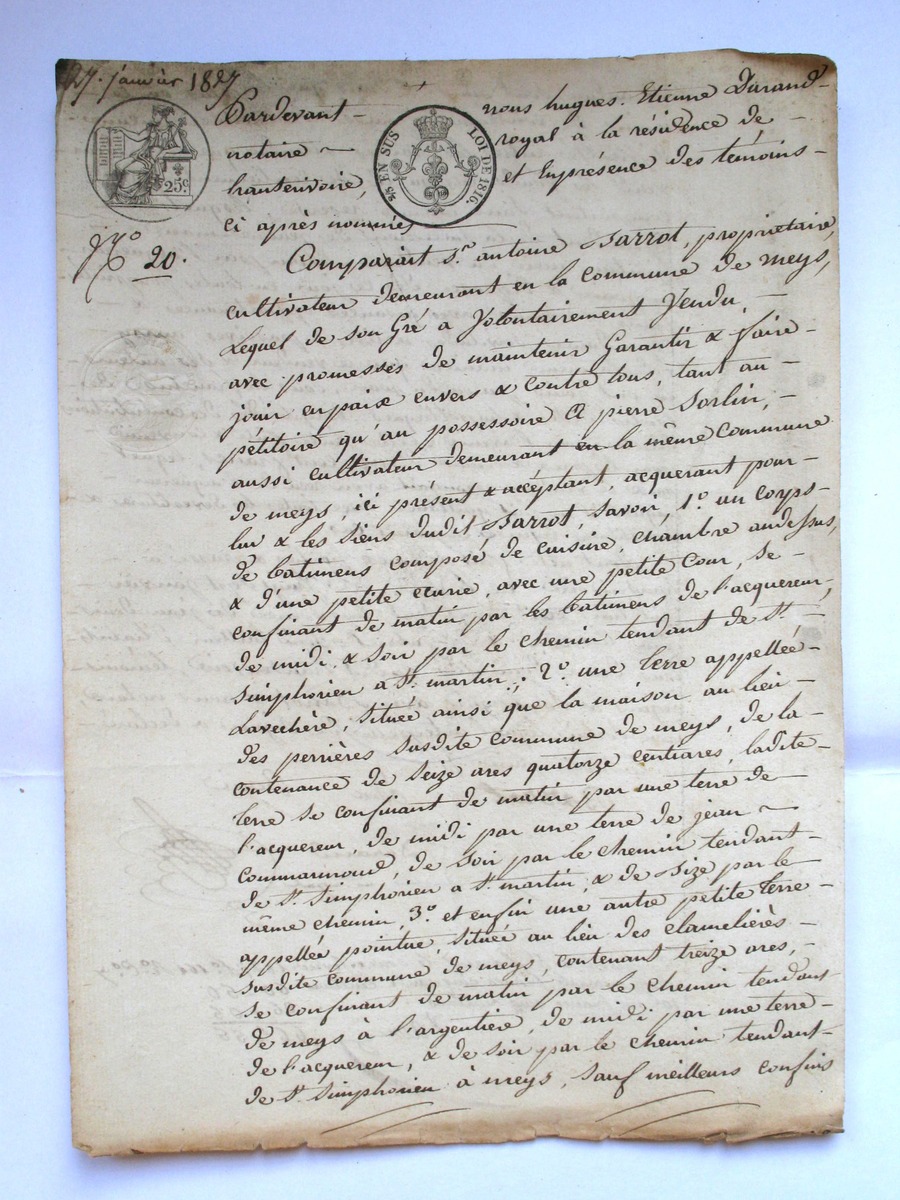 27. janvier 1827
Pardevant nous hugues. Etienne Durand
notaire royal à la résidence de
hauterivoire, et En présence des témoins
ci après nommés
25c
2/8 EN SUS LOI DE 1816.
No 20.
Comparait Sr. antoine Sarrot, propriétaire,
cultivateur demeurant en la Commune de meys,
Lequel de son Gré a Volontairement Vendu
avec promesses de maintenir Garantir & faire
jouir en paise envers & contre tous, tant au
pétitoire qu'au possessoire a pierre Sorlin,
aussi cultivateur demeurant en la même commune
de meys, ici présent & accéptant, acquerant pour
lui & les siens dudit Sarrot, savoir, 1o. un corps
de batimens composé de cuisine, chambre audessus,
& d'une petite ecurie, avec une petite Cour, se
confinant de matin par les batimens de l'acquereur,
de midi & soir par le chemin tendant de St.
Simphorien a St. martin; 2o. une terre appellée
Lavechère, située ainsi que la maison au lieu
des perrières susdite commune de meys, de la
contenance de seize ares quatorze centiares, ladite
terre se confinant de matin par une terre de
l'acquereur, de midi par une terre de jean
commarmond, de soir par le chemin tendant
de St. Simphorien a St. martin, & de Bize par le
même chemin, 3o. et enfin une autre petite terre
appellée pointue, située au lieu des clamelières
susdite commune de meys, contenant treize ares,
se confinant de matin par le chemin tendant
de meys à l'argentière, de midi par une terre
de l'acquereur, & de soir par le chemin tendant
de St. Simphorien à meys, sauf meilleurs confins